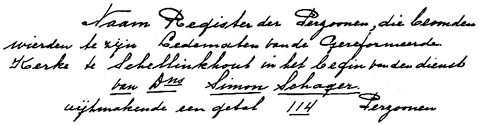 Naam Register der Perzoonen, die bevonden
wierden te zijn Ledematen van de Gereformeerde
Kerke te Schellinkhout in het begin van den dienst
van Dns Simon Schager.
uijtmakende een getal 114 Perzoonen